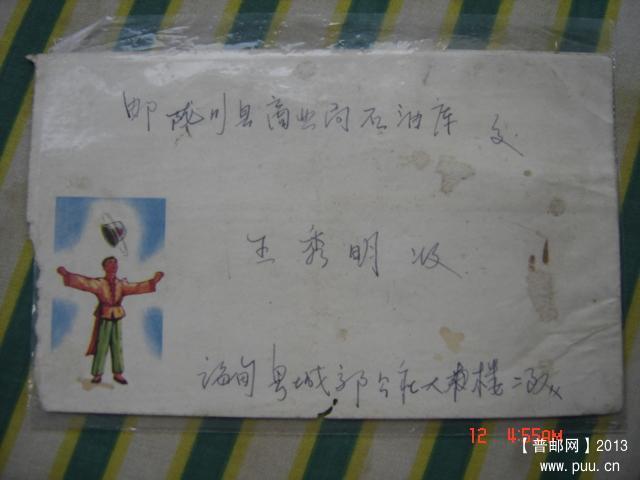 邮 陇川县商业局石油库 交
王秀明 收
浔甸县城郊公社大南楼二队
12 4:55AM
【普邮网】2013
www.puu.cn